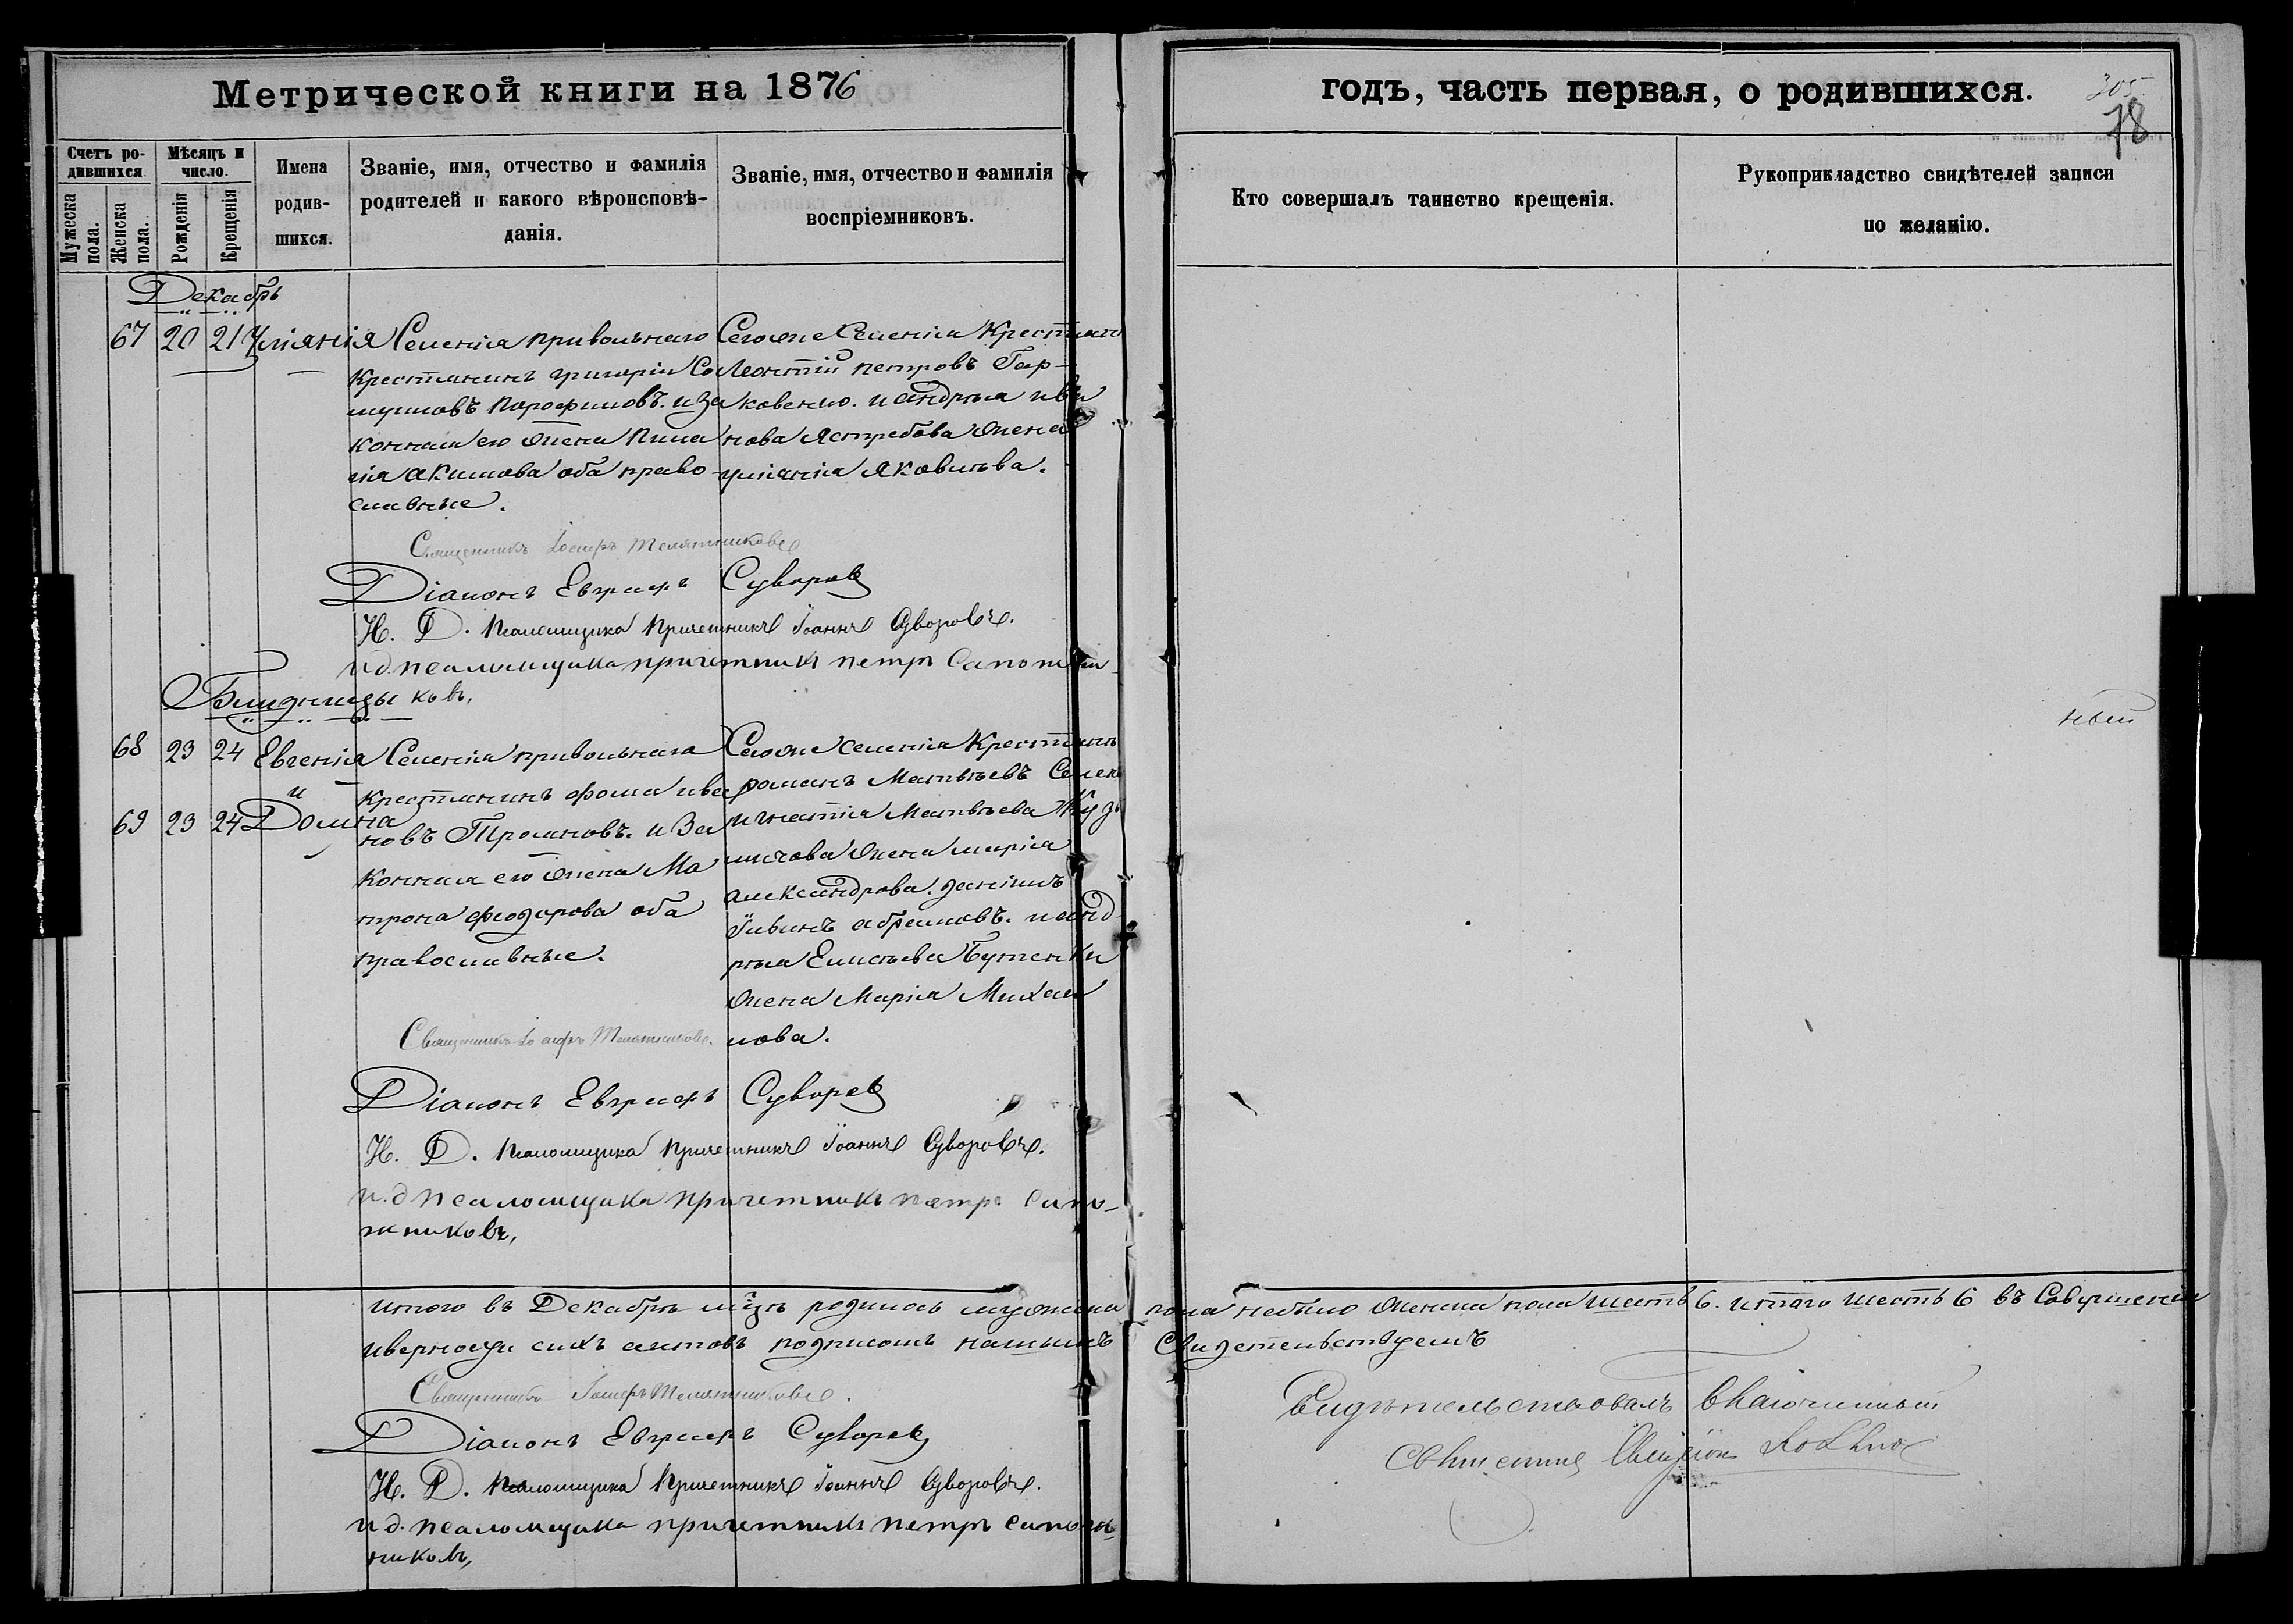 Метрической книги на 1876
годъ, часть первая, о родившихся.
305.
78
Счетъ ро-
дившихся.
Мужеска пола.
Женска пола.
Мѣсяцъ и
число.
Рожденія
Крещенія
Имена
родив-
шихся.
Званіе, имя, отчество и фамилія
родителей и какого вѣроисповѣ-
данія.
Званіе, имя, отчество и фамилія
воспріемниковъ.
Кто совершалъ таинство крещенія.
Рукоприкладство свидѣтелей записи
по желанію.
Декабрь
67 20 21 Уліянія
Селенія привольнаго
Крестянинъ григорій
Парофиловъ. и за
конная его жена
Акимова оба право-
славные.
Сегоже Селенія
Леонтій петровъ Гар-
ковенко. и андрея ива
нова Ястребова жена
уліянія Яковлева.
Священникъ Іосифъ Телятниковъ
Діаконъ Евграфъ Суворов
И. Д. Псаломщика Причетникъ Іоаннъ Суворовъ.
и д. псаломщика причетникъ петръ Сапожни-
ковъ,
Близницы
68 23 24 Евгенія
и
69 23 24 Домна
Селенія привольнаго
крестянинъ фома ива
новъ Трояновъ. и За
конная его жена Ма
трона феодорова оба
православные.
Сегоже селенія
романъ Матвѣевъ
игнатія Матвѣева Куз
жена марія
александрова. даніилъ
абрамовъ. и анд
рея Елисѣева Бутенки
жена Марія Михаи
лова.
Священникъ Іосифъ Телятниковъ.
Діаконъ Евграфъ Суворов
И. Д. Псаломщика Причетникъ Іоаннъ Суворовъ.
и. д псаломщика причетникъ петръ Сапо-
жниковъ,
итого въ Декабрѣ мцѣ родилось мужеска пола небыло женска пола шесть 6. итого шесть 6 въ
иверности сихъ актовъ подписомъ нашимъ Свидетельствуемъ
Священникъ Іосифъ Телятниковъ.
Діаконъ Евграфъ Суворов
И. Д. Псаломщика Причетникъ Іоаннъ Суворовъ.
и д. псаломщика причетникъ петръ Сапож-
никовъ,
Свидѣтельствовалъ Благочинный
ный